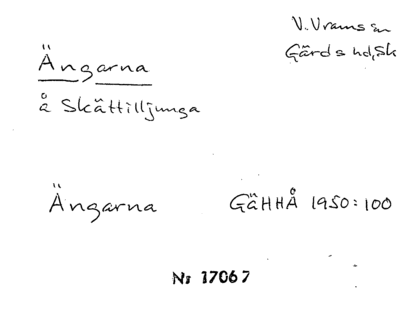 V. Vrams sn
Gärds hd, Sk
Ängarna
å Skättilljunga
Ängarna GÄHHÅ 1950:100
Nr 17067